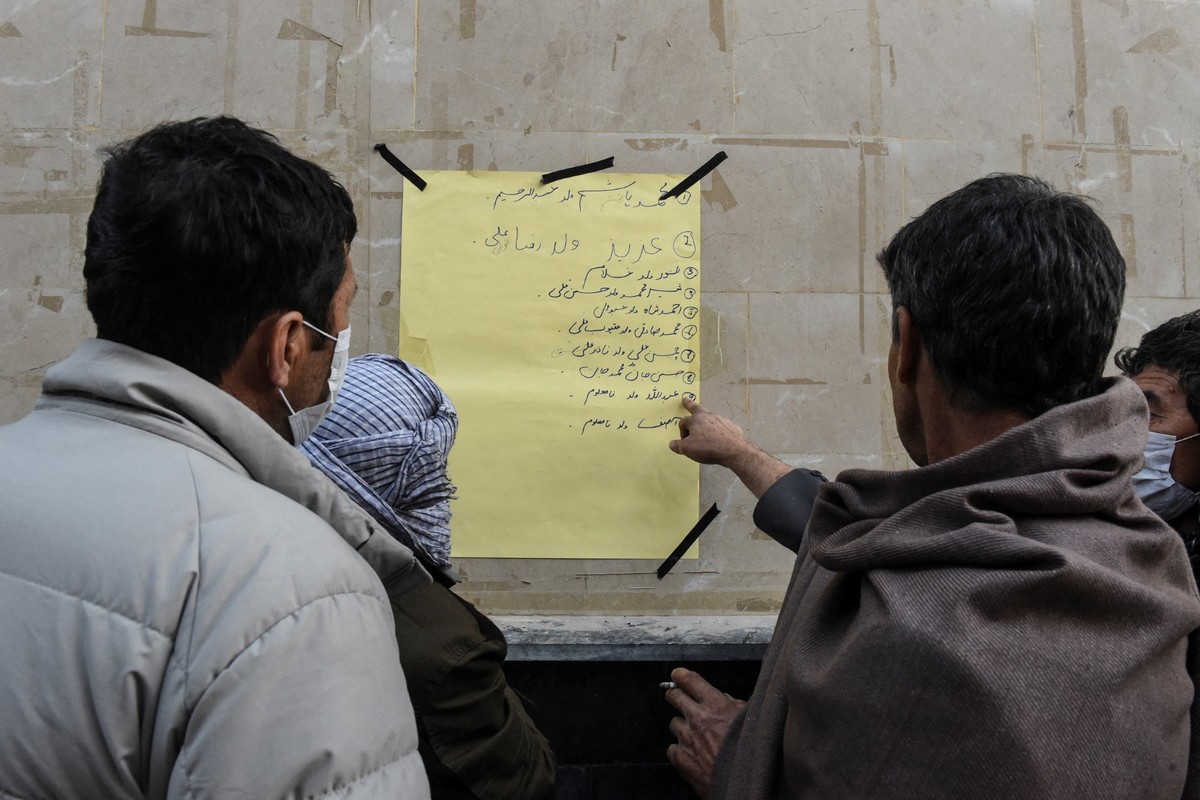 ① محمد هاشم ولد عبدالرحیم.
② عزیز ولد رضا علی.
③ ولد غلام
④ شیر محمد ولد حسن علی.
⑤ احمد شاه ولد
⑥ محمد صادق ولد یعقوب علی.
⑦ حسن علی ولد نادر علی.
⑧ حسن جان محمد جان.
⑨ عبدالله ولد نامعلوم.
آصف ولد نامعلوم.